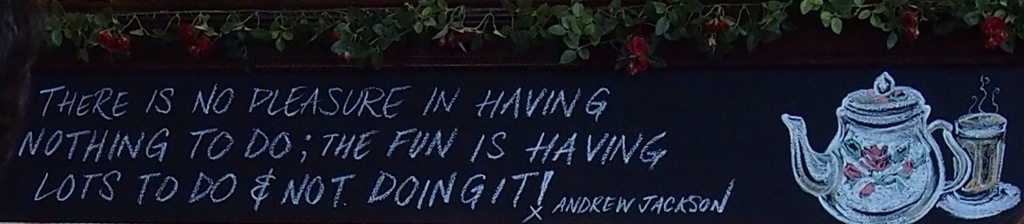 THERE IS NO PLEASURE IN HAVING
NOTHING TO DO; THE FUN IS HAVING
LOTS TO DO & NOT. DOING IT! x ANDREW JACKSON